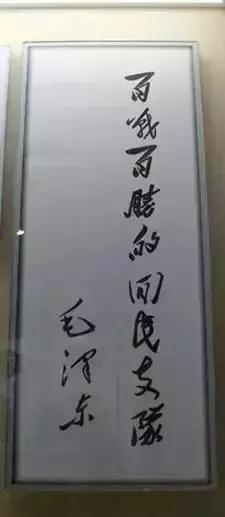 百战百勝的回民支隊
毛泽东